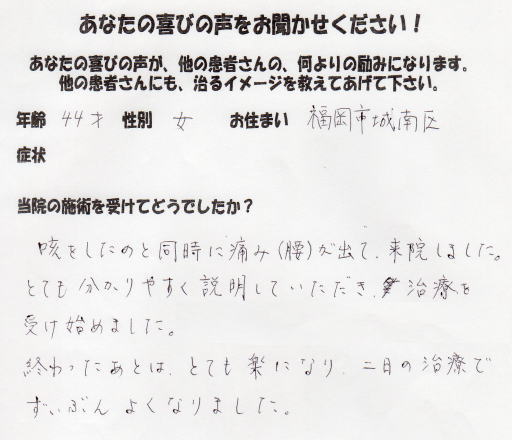 あなたの喜びの声をお聞かせください！
あなたの喜びの声が、他の患者さんの、何よりの励みになります。
他の患者さんにも、治るイメージを教えてあげて下さい。
年齢 44才 性別 女 お住まい 福岡市城南区
症状
当院の施術を受けてどうでしたか？
咳をしたのと同時に痛み(腰)が出て、来院しました。
とても分かりやすく説明していただき、治療を
受け始めました。
終わったあとは、とても楽になり、二日の治療で
ずいぶんよくなりました。